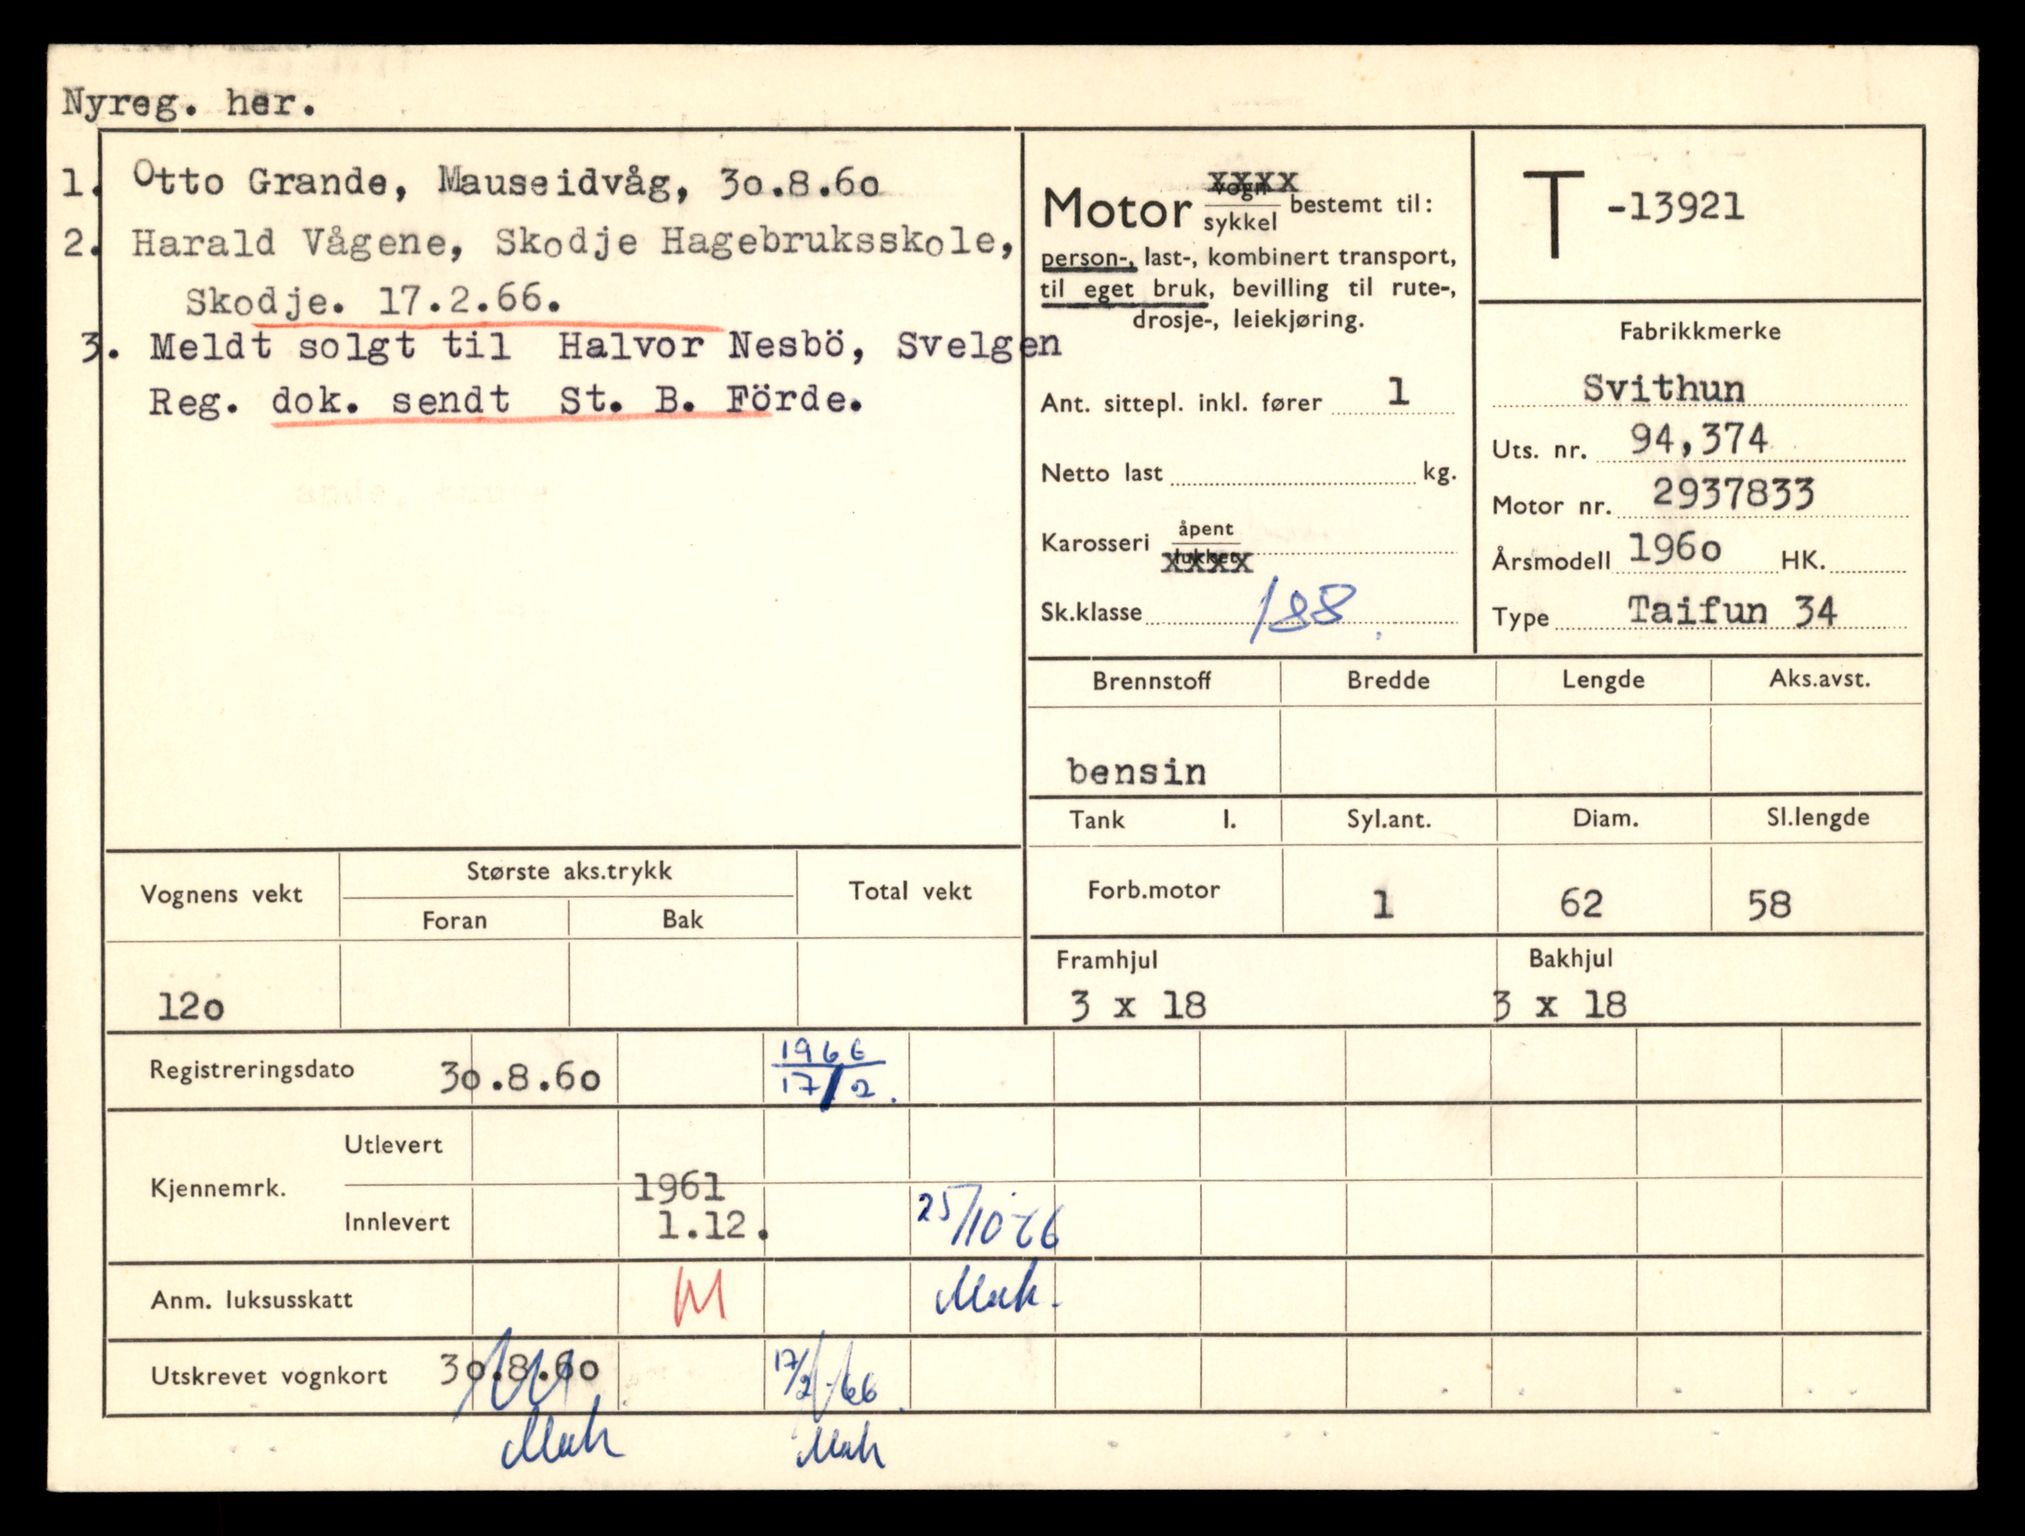 Nyreg. her.
1. Otto Grande, Mauseidvåg, 30.8.60
2. Harald Vågene, Skodje Hagebruksskole,
Skodje. 17.2.66.
3. Meldt solgt til Halvor Nesbö, Svelgen
Reg. dok. sendt St. B. Förde.
Motor vogn xxxx
sykkel bestemt til:
person-, last-, kombinert transport,
til eget bruk, bevilling til rute-,
drosje-, leiekjøring.
Ant. sittepl. inkl. fører 1
Netto last kg.
Karosseri åpent
lukket xxxx
Sk.klasse 188.
T -13921
Fabrikkmerke
Svithun
Uts. nr. 94,374
Motor nr. 2937833
Årsmodell 1960 HK.
Type Taifun 34
Brennstoff Bredde Lengde Aks.avst.
bensin
Tank l. Syl.ant. Diam. Sl.lengde
Forb.motor 1 62 58
Framhjul Bakhjul
3 x 18 3 x 18
Vognens vekt Største aks.trykk Total vekt
Foran Bak
120
Registreringsdato 30.8.60 1966
17/2.
Kjennemrk. Utlevert
Innlevert 1961
1.12. 25/10-66
Anm. luksusskatt M
Utskrevet vognkort 30.8.60 17/2-66